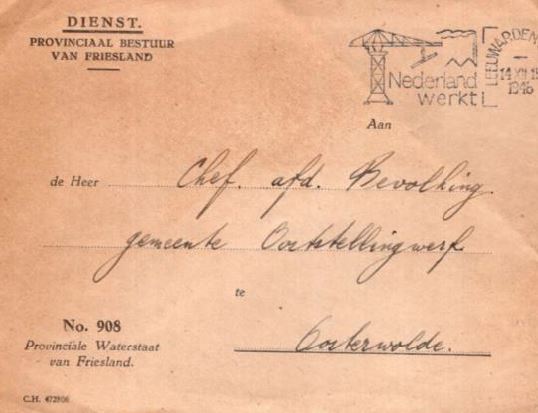 DIENST.
PROVINCIAAL BESTUUR
VAN FRIESLAND
Nederland
werkt
LEEUWARDEN
14 XII
1946
Aan
de Heer Chef. afd. Bevolking.
gemeente Ooststellingwerf
te
No. 908
Oosterwolde.
Provinciale Waterstaat
van Friesland.
C.H.